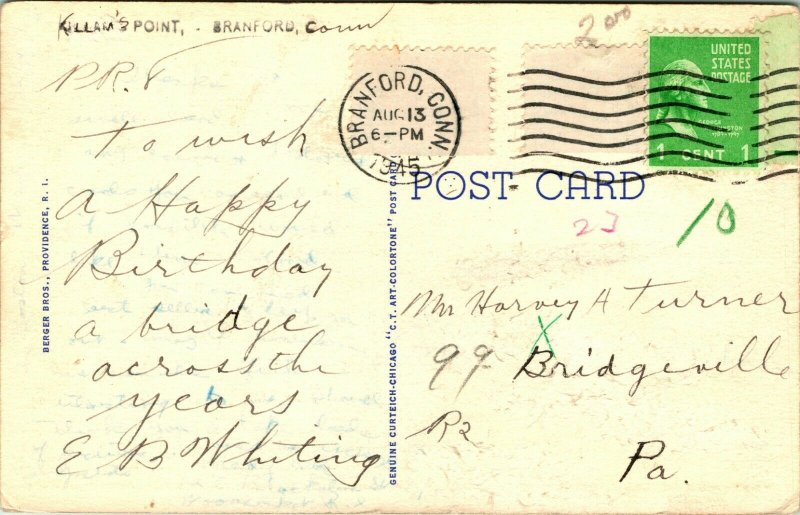 KILLAM'S POINT, - BRANFORD, Conn
P.R.
To wish
a Happy
Birthday
a bridge
across the
years
E B Whiting
BERGER BROS., PROVIDENCE, R. I.
GENUINE CURTEICH-CHICAGO "C.T. ART-COLORTONE" POST CARD
BRANFORD, CONN.
AUG 13
6-PM
1945
2 00
UNITED
STATES
POSTAGE
GEORGE
1 CENT 1
POST CARD
23
10
Mr Harvey H Turner
99 Bridgeville
R2
Pa.